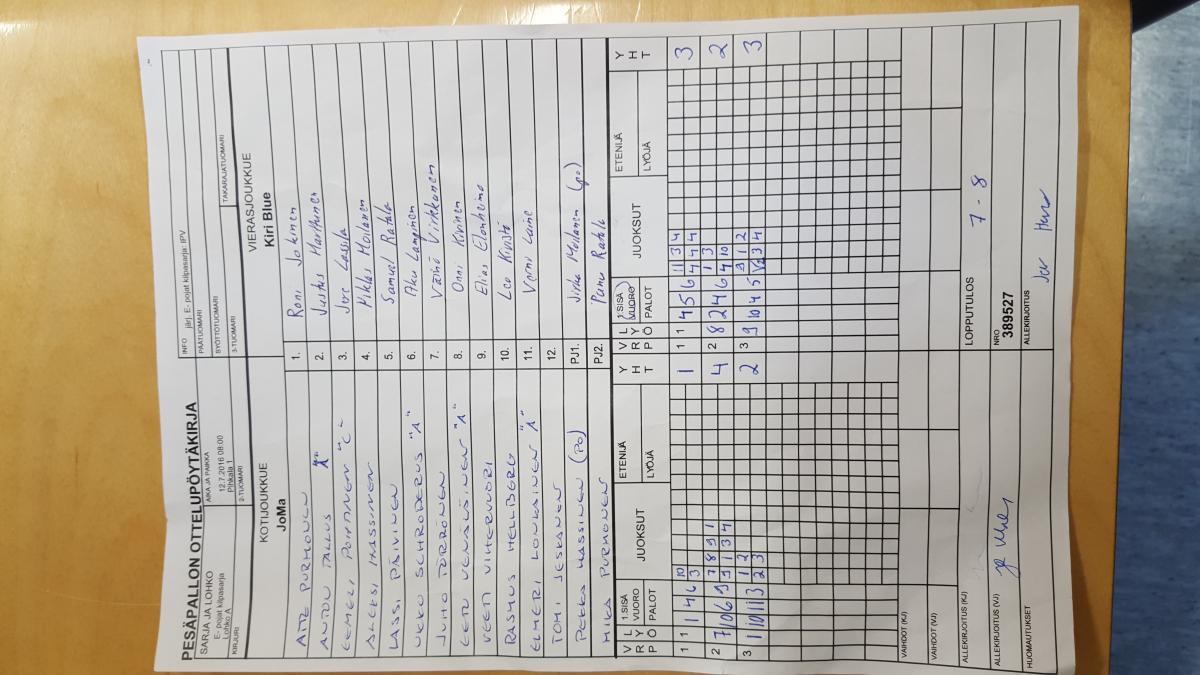 PESÄPALLON OTTELUPÖYTÄKIRJA
SARJA JA LOHKO
E- pojat kilpasarja
Lohko A
AIKA JA PAIKKA
12.7.2016 08:00
Pihkala 1
INFO järj. E- pojat kilpasarja: IPV
PÄÄTUOMARI
SYÖTTÖTUOMARI
KIRJURI
2-TUOMARI
3-TUOMARI
TAKARAJATUOMARI
KOTIJOUKKUE
JoMa
VIERASJOUKKUE
Kiri Blue
ATTE PURMONEN 1. Roni Jokinen
ANTON TALLUS 2. Justus Marttunen
EEMELI POHJANEN "C" 3. Jere Lassila
ALEKSI HASSINEN 4. Niklas Moilanen
LASSI PÄIVINEN 5. Samuel Ratala
UKKO SCHRODERUS "A" 6. Aku Lampinen
JUHO TÖRRÖNEN 7. Väinö Virkkunen
EETU VENÄLÄINEN "A" 8. Onni Kivinen
VEETI VIHERVUORI 9. Elias Elonheimo
RASMUS HELLBERG 10. Leo
ELMERI LONKAINEN "A" 11. Verni Laine
TOMI JESKANEN 12.
PEKKA HASSINEN (PO) PJ1. Jirka Moilanen (po)
MIKA PURMONEN PJ2. Panu Ratala
VRP LYÖ 1:SISÄ VUORO PALOT JUOKSUT ETENIJÄ LYÖJÄ YHT VRP LYÖ 1:SISÄ VUORO PALOT JUOKSUT ETENIJÄ LYÖJÄ YHT
1 1 1 4 6 10 3 1 1 1 4 5 6 11 3 4 4 4 4 3
2 7 10 6 9 7 8 9 1 9 1 3 4 4 2 8 2 4 6 1 3 4 10 2
3 1 10 11 3 1 2 2 3 2 3 9 10 4 5 9 1 2 3 4 3
VAIHDOT (KJ)
VAIHDOT (VJ)
ALLEKIRJOITUS (KJ)
LOPPUTULOS 7 - 8
ALLEKIRJOITUS (VJ)
NRO
389527
HUOMAUTUKSET
ALLEKIRJOITUS